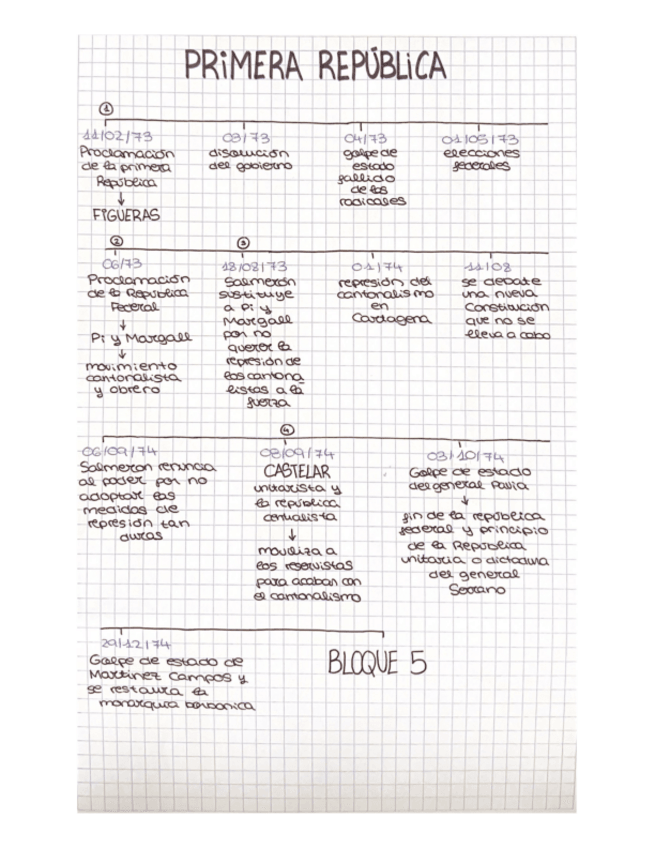 PRIMERA REPÚBLICA
①
11/02/73
Proclamación
de la primera
República
↓
FIGUERAS
03/73
disolución
del gobierno
04/73
golpe de
estado
fallido
de los
radicales
01/05/73
elecciones
federales
②
06/73
Proclamación
de la República
Federal
↓
Pi y Margall
↓
movimiento
cantonalista
y obrero
③
18/08/73
Salmerón
sustituye
a Pi y
Margall
por no
querer la
represión de
los cantona
listas a la
fuerza
01/74
represión del
cantonalismo
en
Cartagena
11/08
se debate
una nueva
Constitución
que no se
lleva a cabo
06/09/74
Salmeron renuncia
al poder por no
adoptar las
medidas de
represión tan
duras
④
08/09/74
CASTELAR
unitarista y
la república
centralista
↓
moviliza a
los reservistas
para acaban con
el cantonalismo
03/10/74
Golpe de estado
del general Pavia
↓
fin de la república
federal y principio
de la República
unitaria o dictadura
del general
Serrano
29/12/74
Golpe de estado de
Martinez Campos y
se restaura la
monarquia borbonica
BLOQUE 5